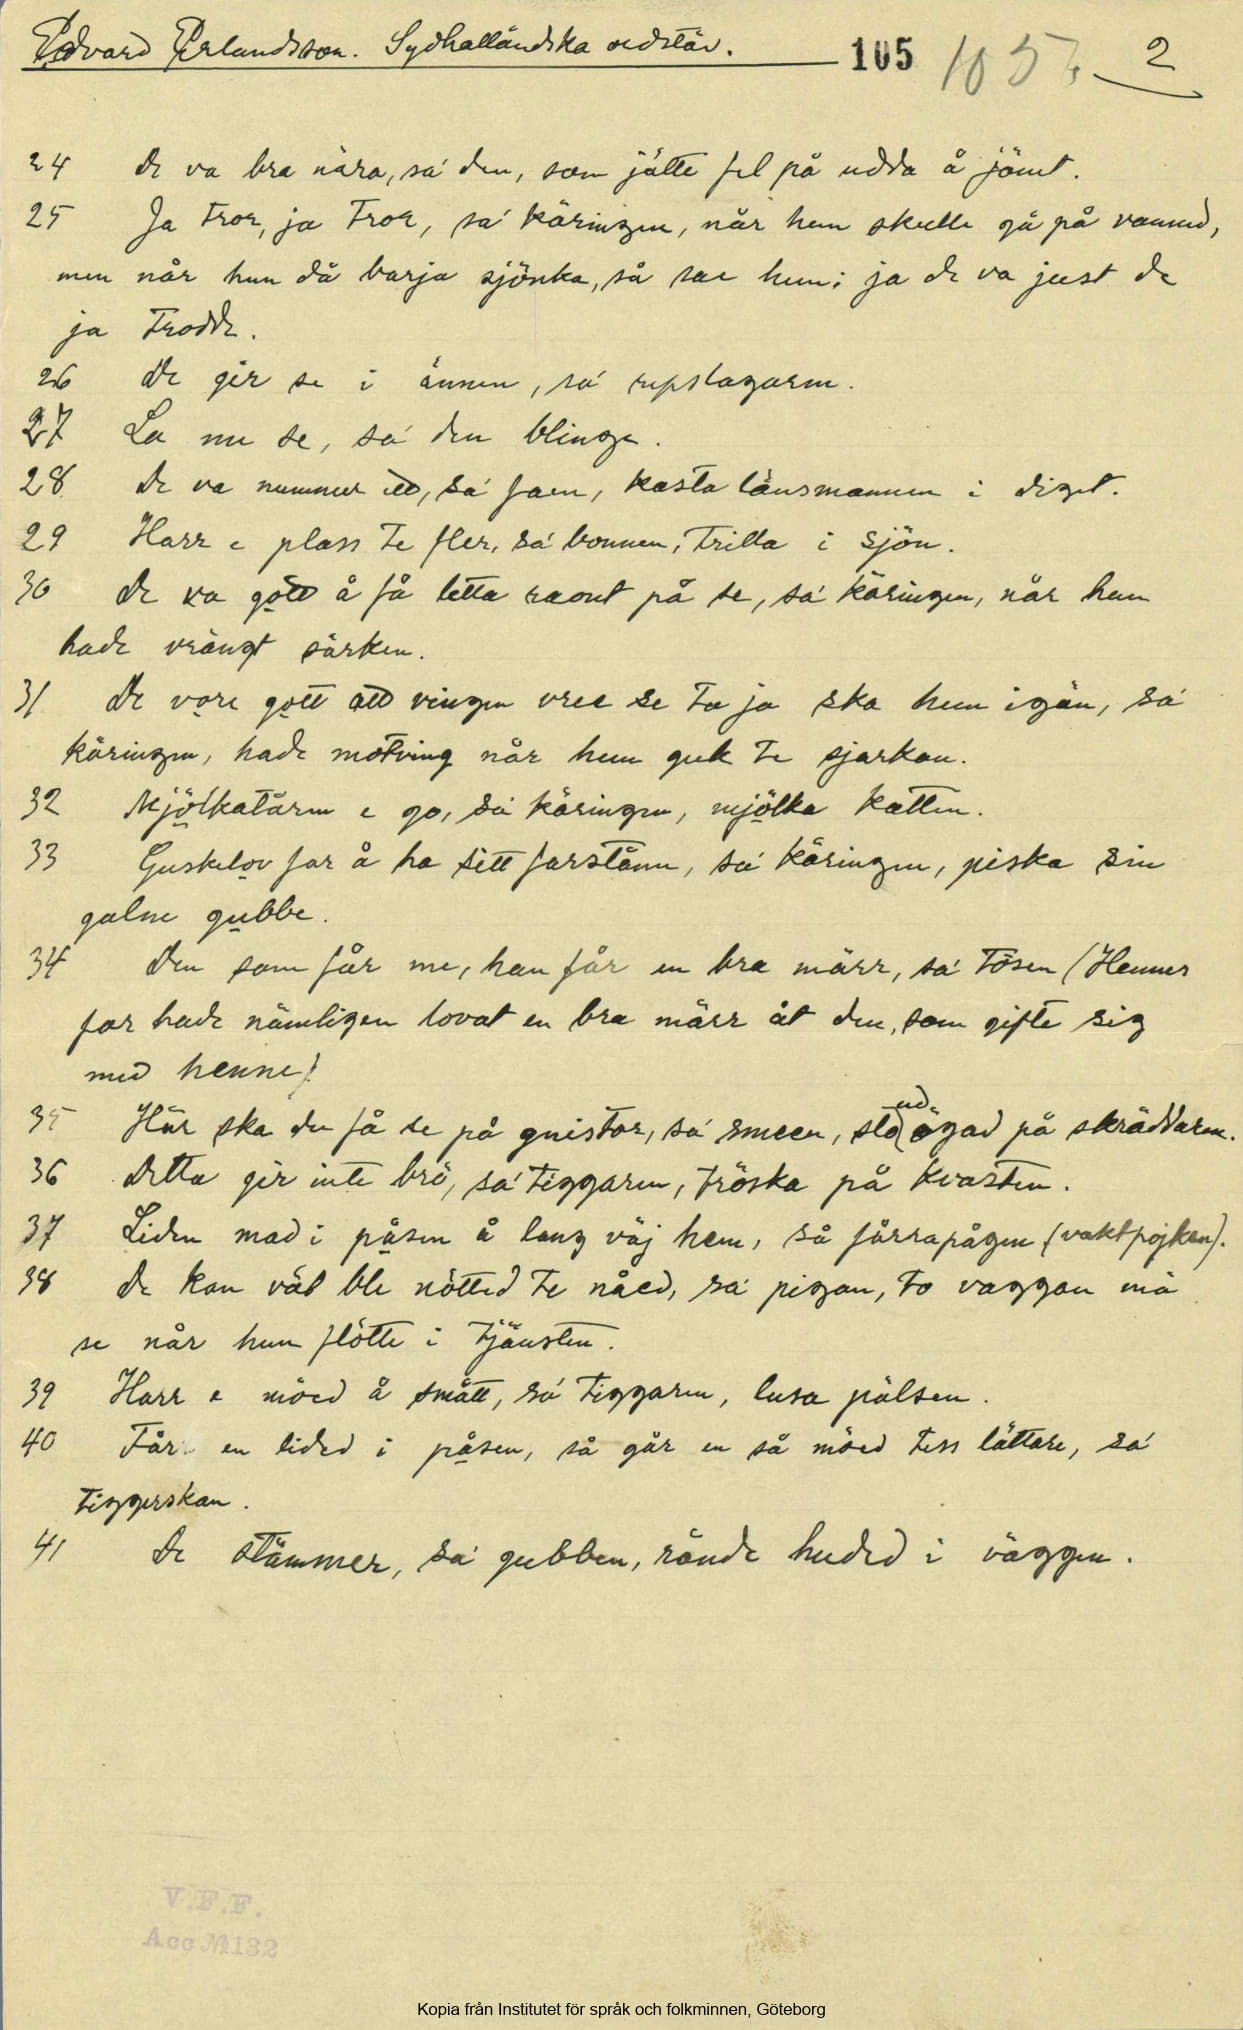 Edvard Erlandsson. Sydhalländska ordstäv. 105 105, 2
24 De va bra nära, sa' den, som jätte fel på udda å jömt.
25 Ja tror, ja tror, sa' käringen, når hun skulle gå på vanned,
men når hun då barja sjönka, så sae hun: ja de va just de
ja trodde.
26 De gir se i ännen, sa' repslagaren.
27 La me se, sa' den blinge.
28 De va nummer ett, sa' faen, kasta länsmannen i diget.
29 Harr e plass te fler, sa' bonnen, trilla i sjön.
30 De va gott å få letta raont på se, sa' käringen, når hun
hade vrängt särken.
31 De vore gott att vingen vree se to ja ska hem igän, sa'
käringen, hade motving når hun guk te sjarkan.
32 Mjölkatåren e go, sa' käringen, mjölka katten.
33 Guskelov for å ha sitt forstånn, sa' käringen, piska sin
galne gubbe.
34 Den som får me, han får en bra märr, sa' tösen (Hennes
far hade nämligen lovat en bra märr åt den, som gifte sig
med henne).
35 Här ska du få se på gnistor, sa' smeen, slo ud ögad på skräddaren.
36 Detta gir inte brö, sa' tiggaren, tröska på kvasten.
37 Liden mad i påsen å lang väj hem, så fårrapågen (vaktpojken).
38 De kan väl ble nötted te nåed, sa' pigan, to vaggan mä
se når hun flötte i tjänsten.
39 Harr e möed å smått, sa' tiggaren, lusa pälsen.
40 Får en lided i påsen, så går en så möed tess lättare, sa'
tiggerskan.
41 De stämmer, sa' gubben, rände huded i väggen.
V.F.F.
Acc № 132
Kopia från Institutet för språk och folkminnen, Göteborg